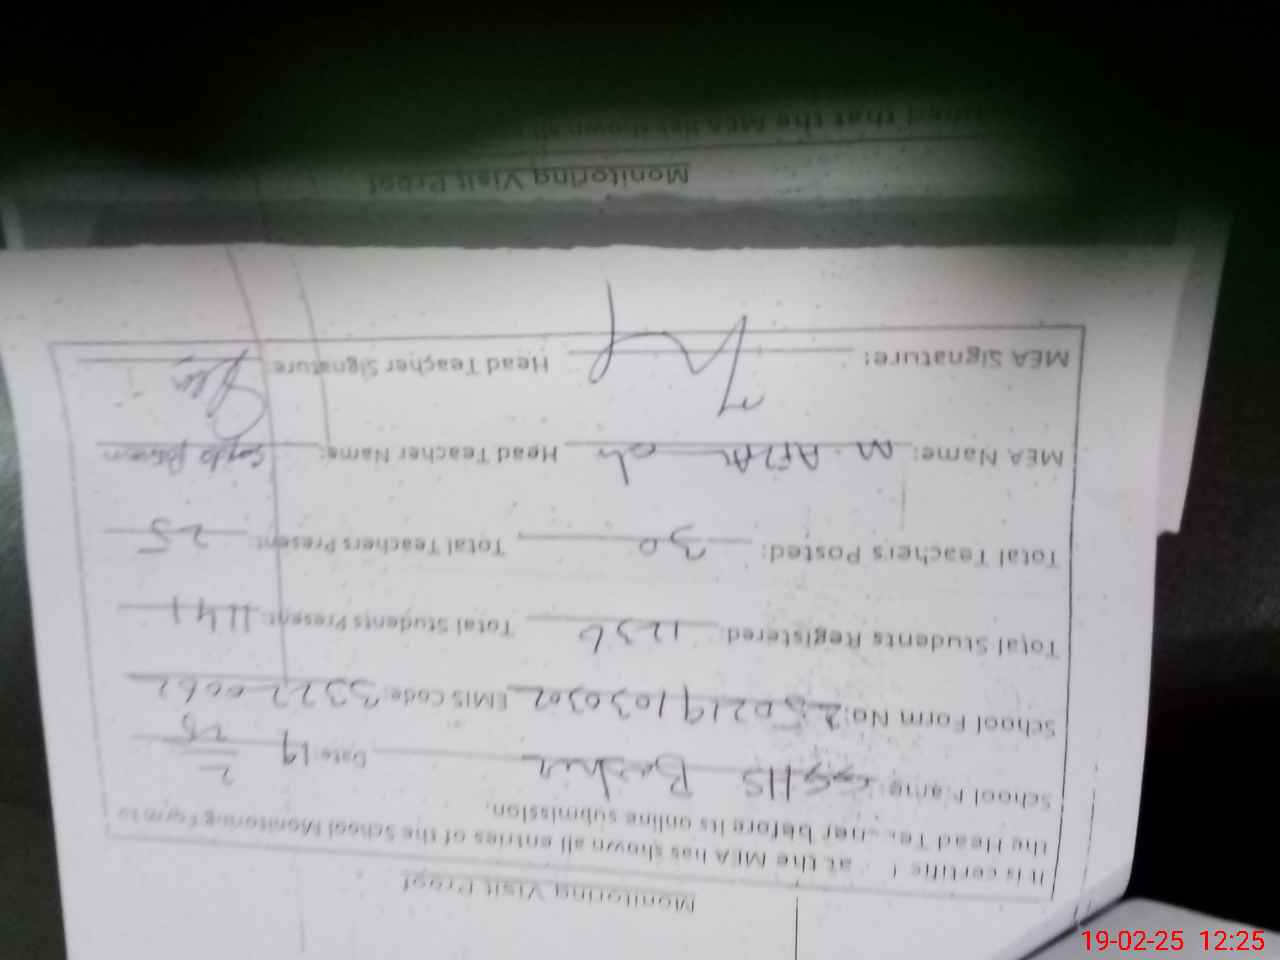 Monitoring Visit Proof
It is certifie at the MEA has shown all entries of the School Monitoring Form to
the Head Te her before its online submission.
School Name: GGHS Date: 19 2 25
School Form No: 250219103030 EMIS Code: 33220062
Total Students Registered: 1236 Total Students Present: 1141
Total Teachers Posted: 30 Total Teachers Present: 25
MEA Name: M. Head Teacher Name:
MEA Signature: Head Teacher Signature
Monitoring Visit Proof
that the MEA has shown all
19-02-25 12:25